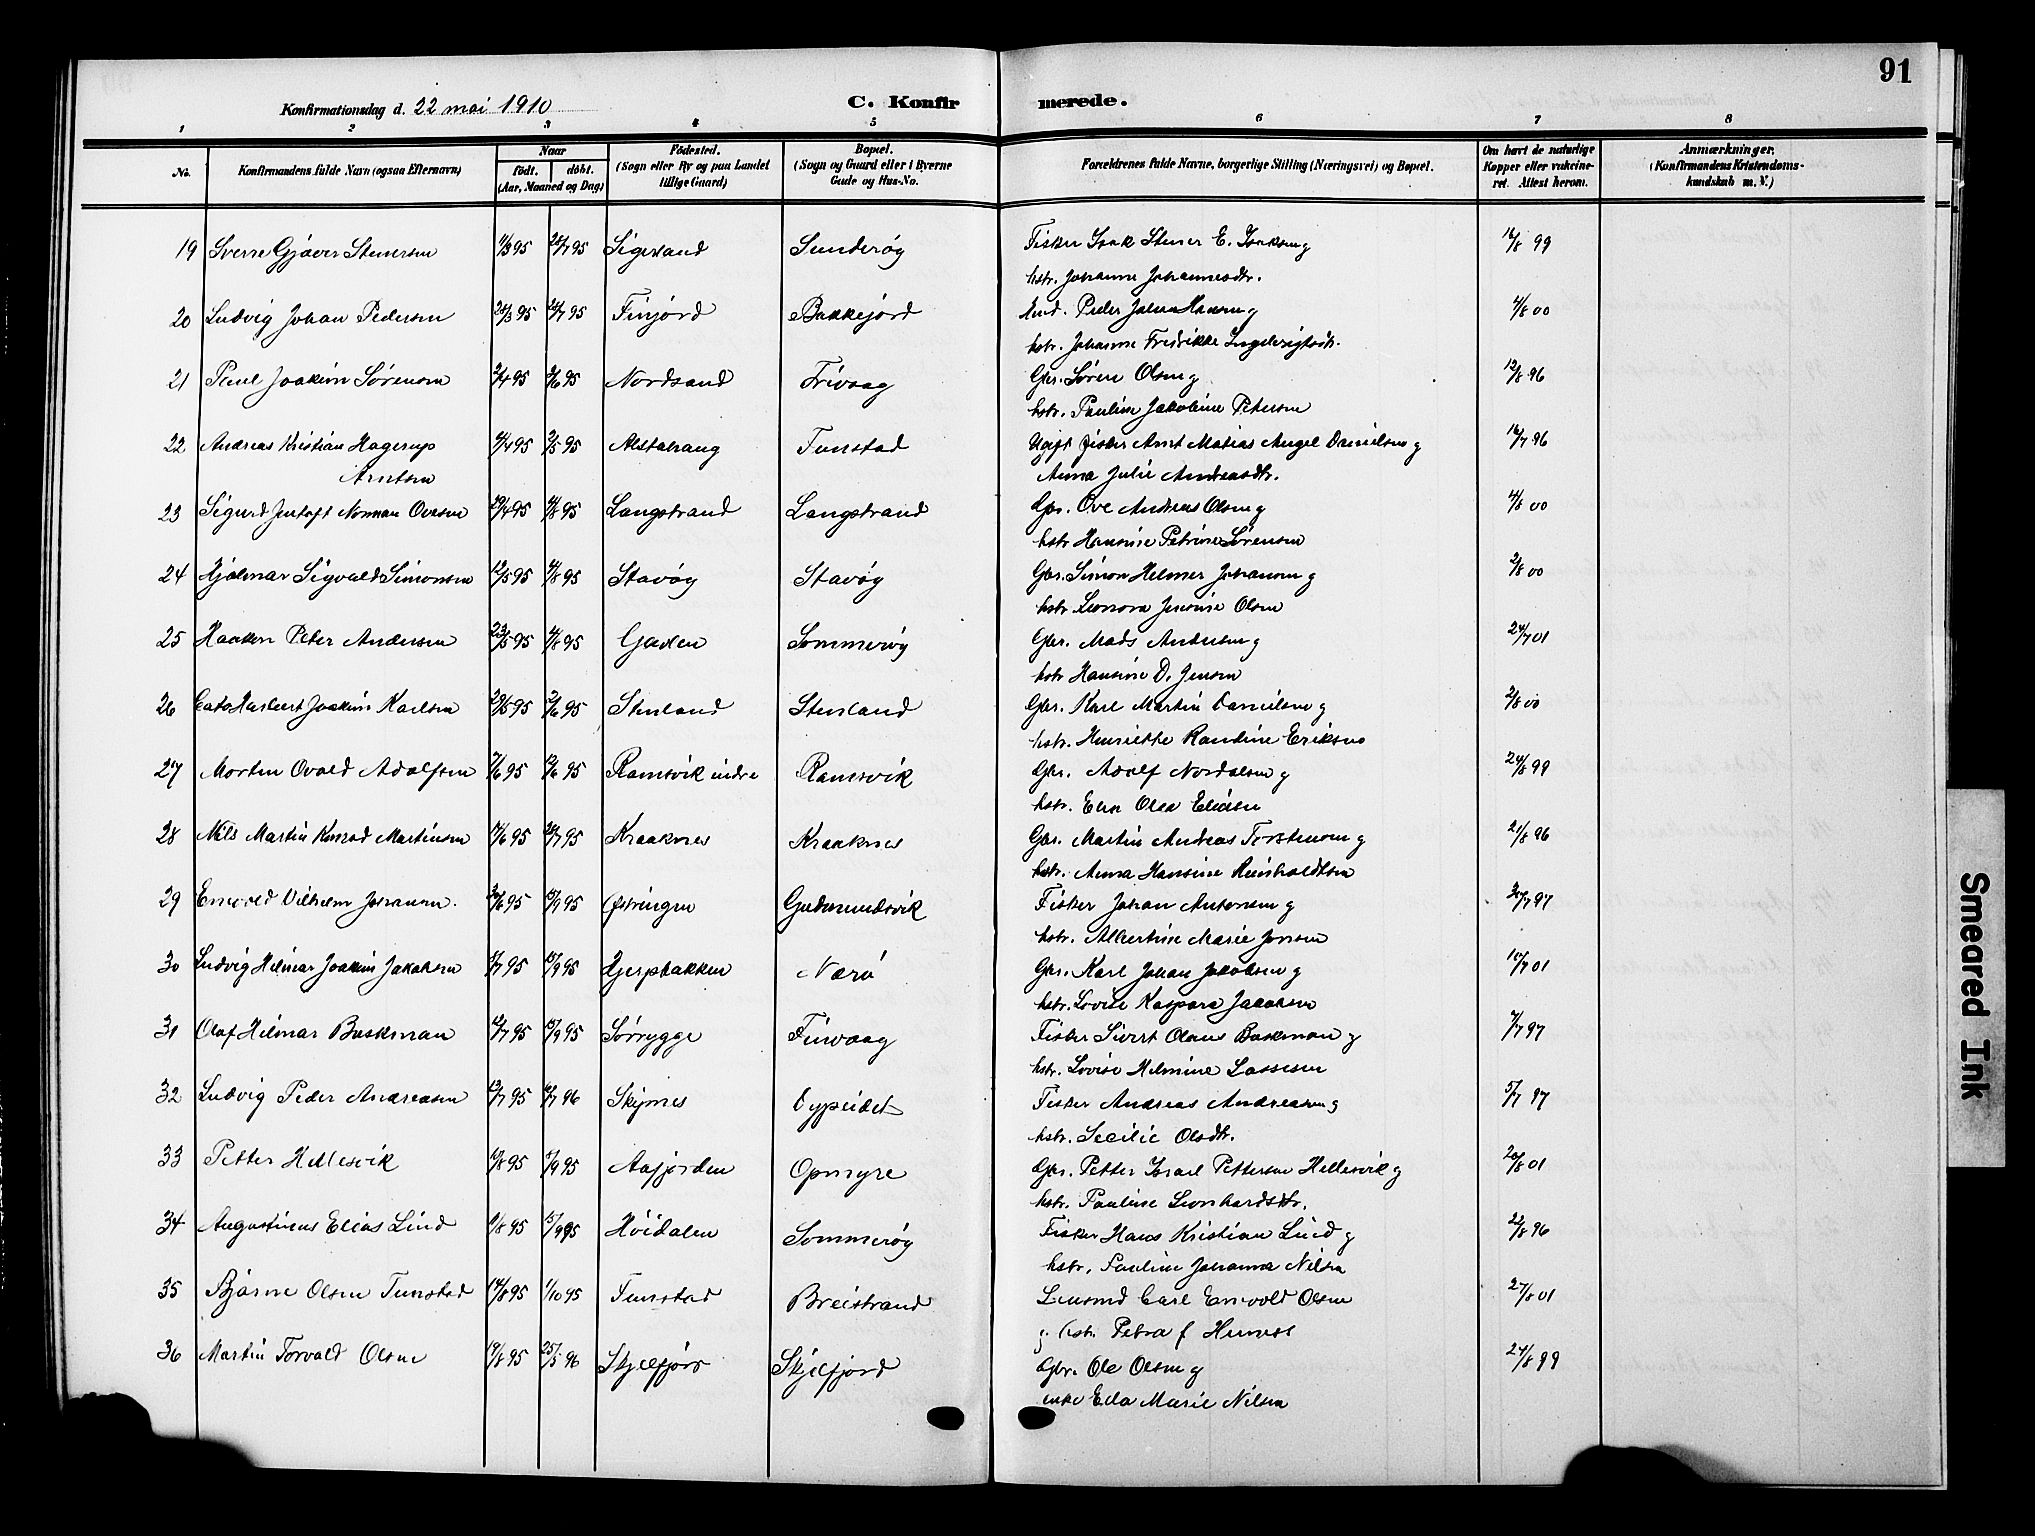 91
Konfirmationsdag d. 22 mai 1910
C. Konfirmerede.
1 2 3 4 5 6 7 8
No.
Konfirmandens fulde Navn (ogsaa Efternavn)
Naar
født. døbt.
(Aar, Maaned og Dag)
Fødested.
(Sogn eller By og paa Landet
tillige Gaard)
Bopæl.
(Sogn og Gaard eller i Byerne
Gade og Hus-No.
Forældrenes fulde Navne, borgerlige Stilling (Næringsvei) og Bopæl.
Om havt de naturlige
Kopper eller vakcine-
ret. Attest herom.
Anmærkninger.
(Konfirmandens Kristendoms-
kundskab m. V.)
19 Sverre Gjæver Stenersen 95 28/7 95 Sigersand Sunderøy Fisker Isak Stener E. Isaksen g 16/8 99
hstr. Johanne Johannesdtr.
20 Ludvig Johan Pedersen 95 95 Finjord Bakkejord Peder Johan Hansen g 4/8 00
hstr. Johanne Fredrikke
21 Paul Joakim Sørensen 2/4 95 95 Nordsand Gbr. Søren Olsen g 12/8 96
hstr. Pauline Jakobine Petersen
22 Andreas Kristian Hagerup 95 95 Alstahaug Tunstad Ugift fisker Arnt Matias Angel Danielsen g 16/7 96
Arntsen Anna Julie Andreasdtr.
23 Sigurd Norman Ovesen 29/4 95 4/8 95 Langstrand Langstrand Gbr. Ove Andreas Olsen g 4/8 00
hstr Hansine Petrine Sørensen
24 Hjalmar Sigvald Simonsen 12/5 95 4/8 95 Stavøy Stavøy Gbr. Simon Helmer Johansen g 2/8 00
hstr Leonora Jensine Olsen
25 Haakon Peter Andersen 23/5 95 4/8 95 Sommerøy Gbr. Mads Andersen g 24/7 01
hstr Hansine D. Jensen
26 Joakim Karlsen 29/5 95 95 Stenland Stenland Gbr. Karl Martin Danielsen g 2/8 00
hstr. Henriette Randine Eriksen
27 Morten Ovald Adolfsen 95 95 Ramsvik indre Ramsvik Gbr. Adolf Nordalsen g 24/8 99
hstr. Olea Eliasen
28 Nils Martin Konrad Martinsen 95 28/7 95 Kraaknes Kraaknes Gbr. Martin Andreas Torstensen g 21/8 96
hstr. Anna Hansine Reinholdtsen
29 Enevold Vilhelm Johansen. 95 15/9 95 Østringen Gudmundsvik Fisker Johan Antonsen g 97
hstr. Albertine Marie Jensen
30 Ludvig Hilmar Joakim Jakobsen 95 15/9 95 Hjerpbakken Nærø Gbr. Karl Johan Jakobsen g 10/7 01
hstr. Lovise Kaspara Jakobsen
31 Olaf Hilmar Baskman 12/7 95 15/9 95 Sørrygge Finvaag Fisker Sivert Olaus Baskman g 7/7 97
hstr. Lovise Helmine Lassesen
32 Ludvig Peder Andreasen 13/7 95 96 Skjrnes Dypeidet Fisker Andreas Andreasen g 5/7 97
hstr. Secilie Olsdtr.
33 Petter Hellesvik 95 95 Aafjorden Opmyre Gbr. Petter Israel Pettersen Hellesvik g 20/8 01
hstr. Pauline Leonhardsdtr.
34 Augustinus Elias Lind 95 15/9 95 Høidalen Sommerøy Fisker Hans Kristian Lind g 22/8 96
hstr. Pauline Johanna Nilsen
35 Bjarne Olsen Tunstad 14/8 95 1/10 95 Tunstad Breistrand Lensmd Carl Enevold Olsen 27/8 01
g. hstr. Petra f
36 Martin Torvald Olsen 19/8 95 25/5 96 Skjelfjord Skjelfjord Gbr. Ole Olsen g 24/8 99
enke Marie Nilsen
Smeared Ink